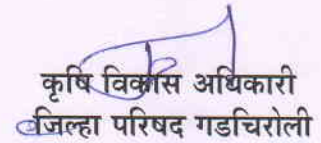 कृषि विकास अधिकारी
जिल्हा परिषद गडचिरोली